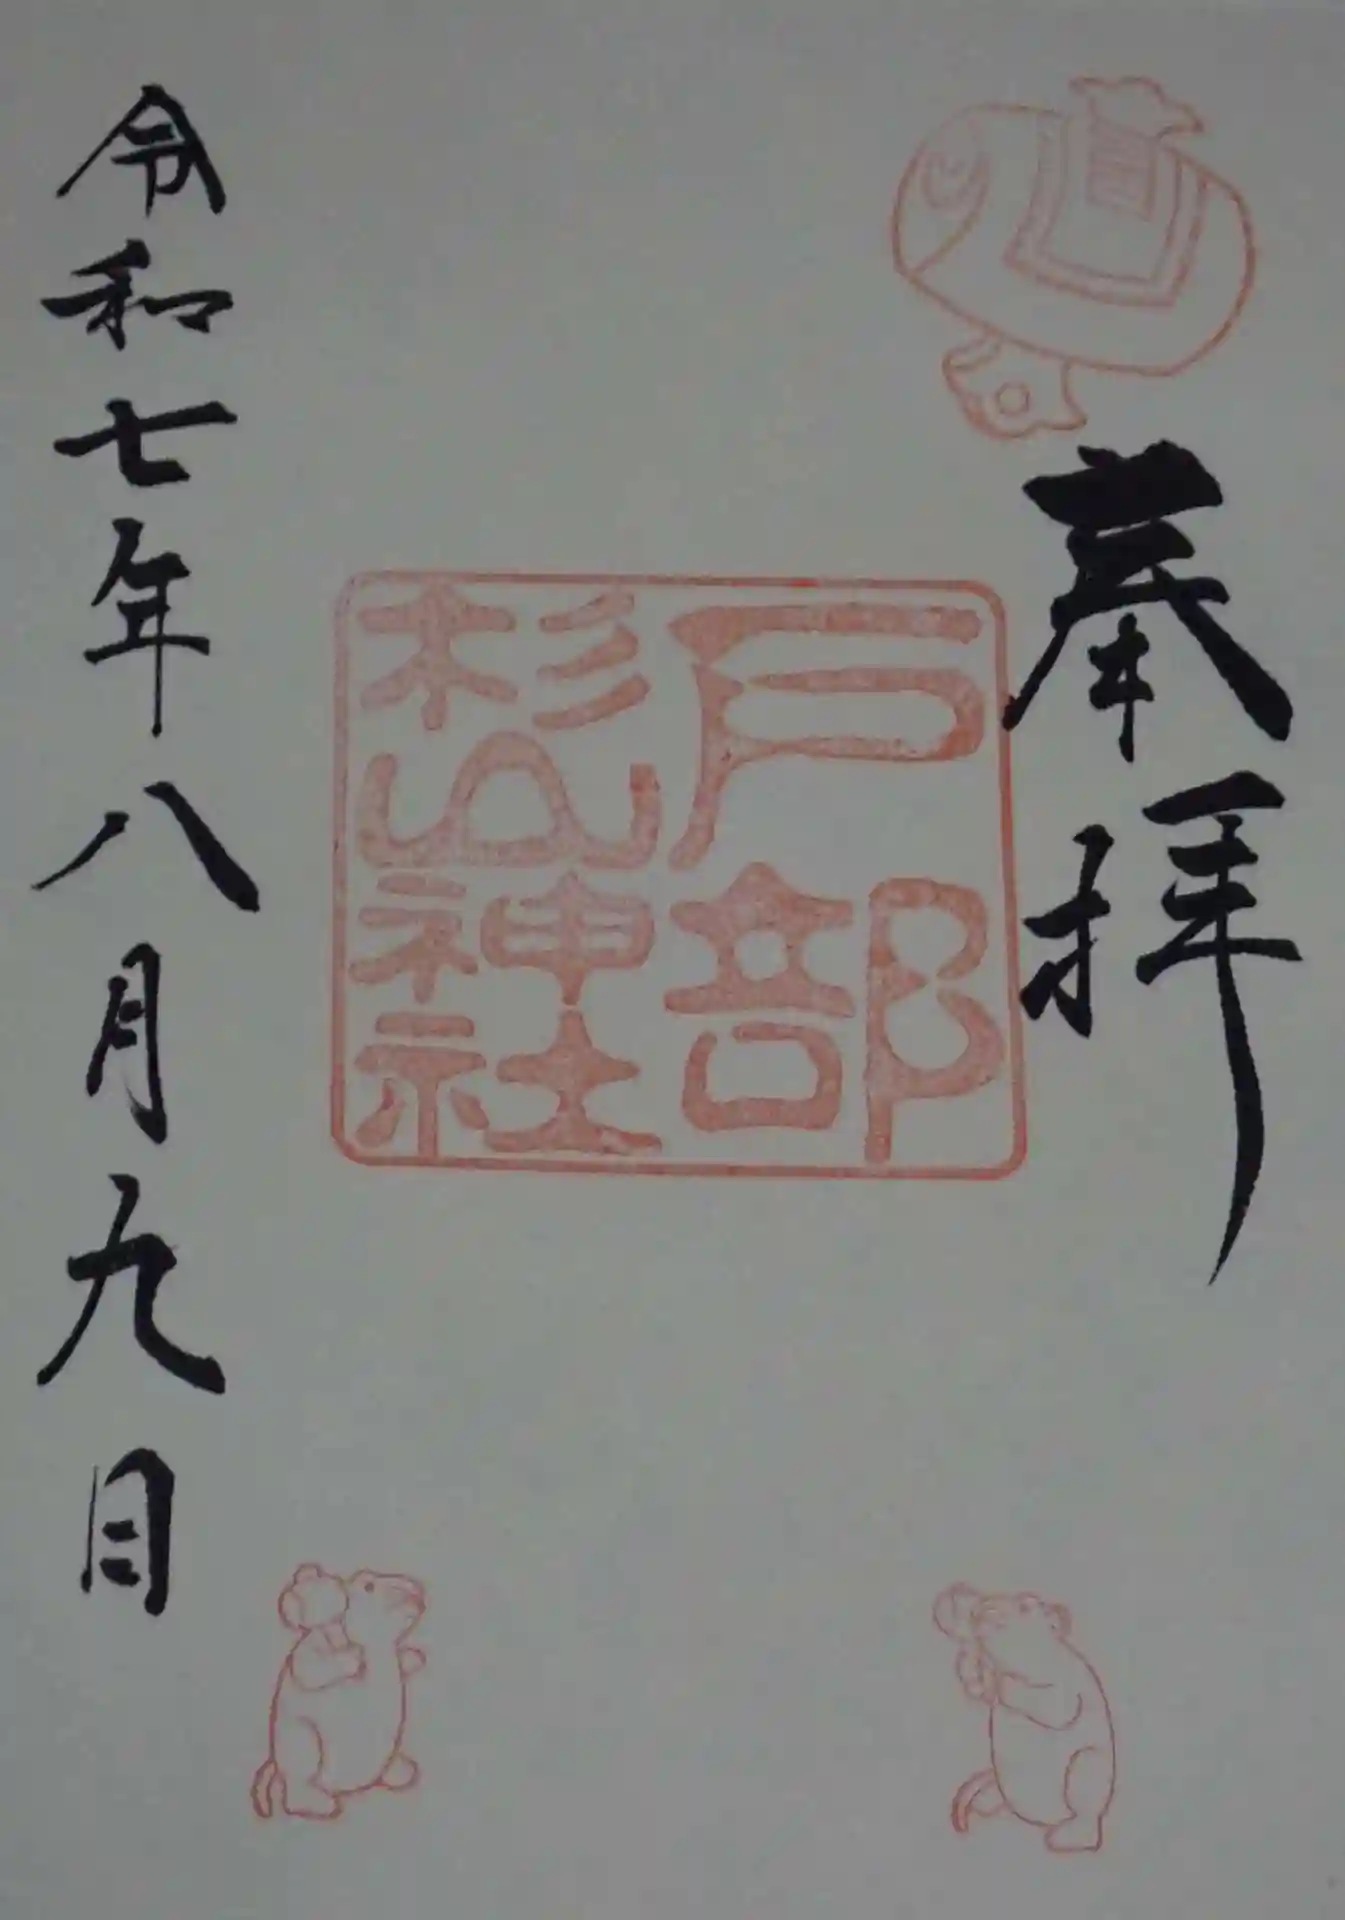 奉拝
戸部
杉山神社
令和七年八月九日